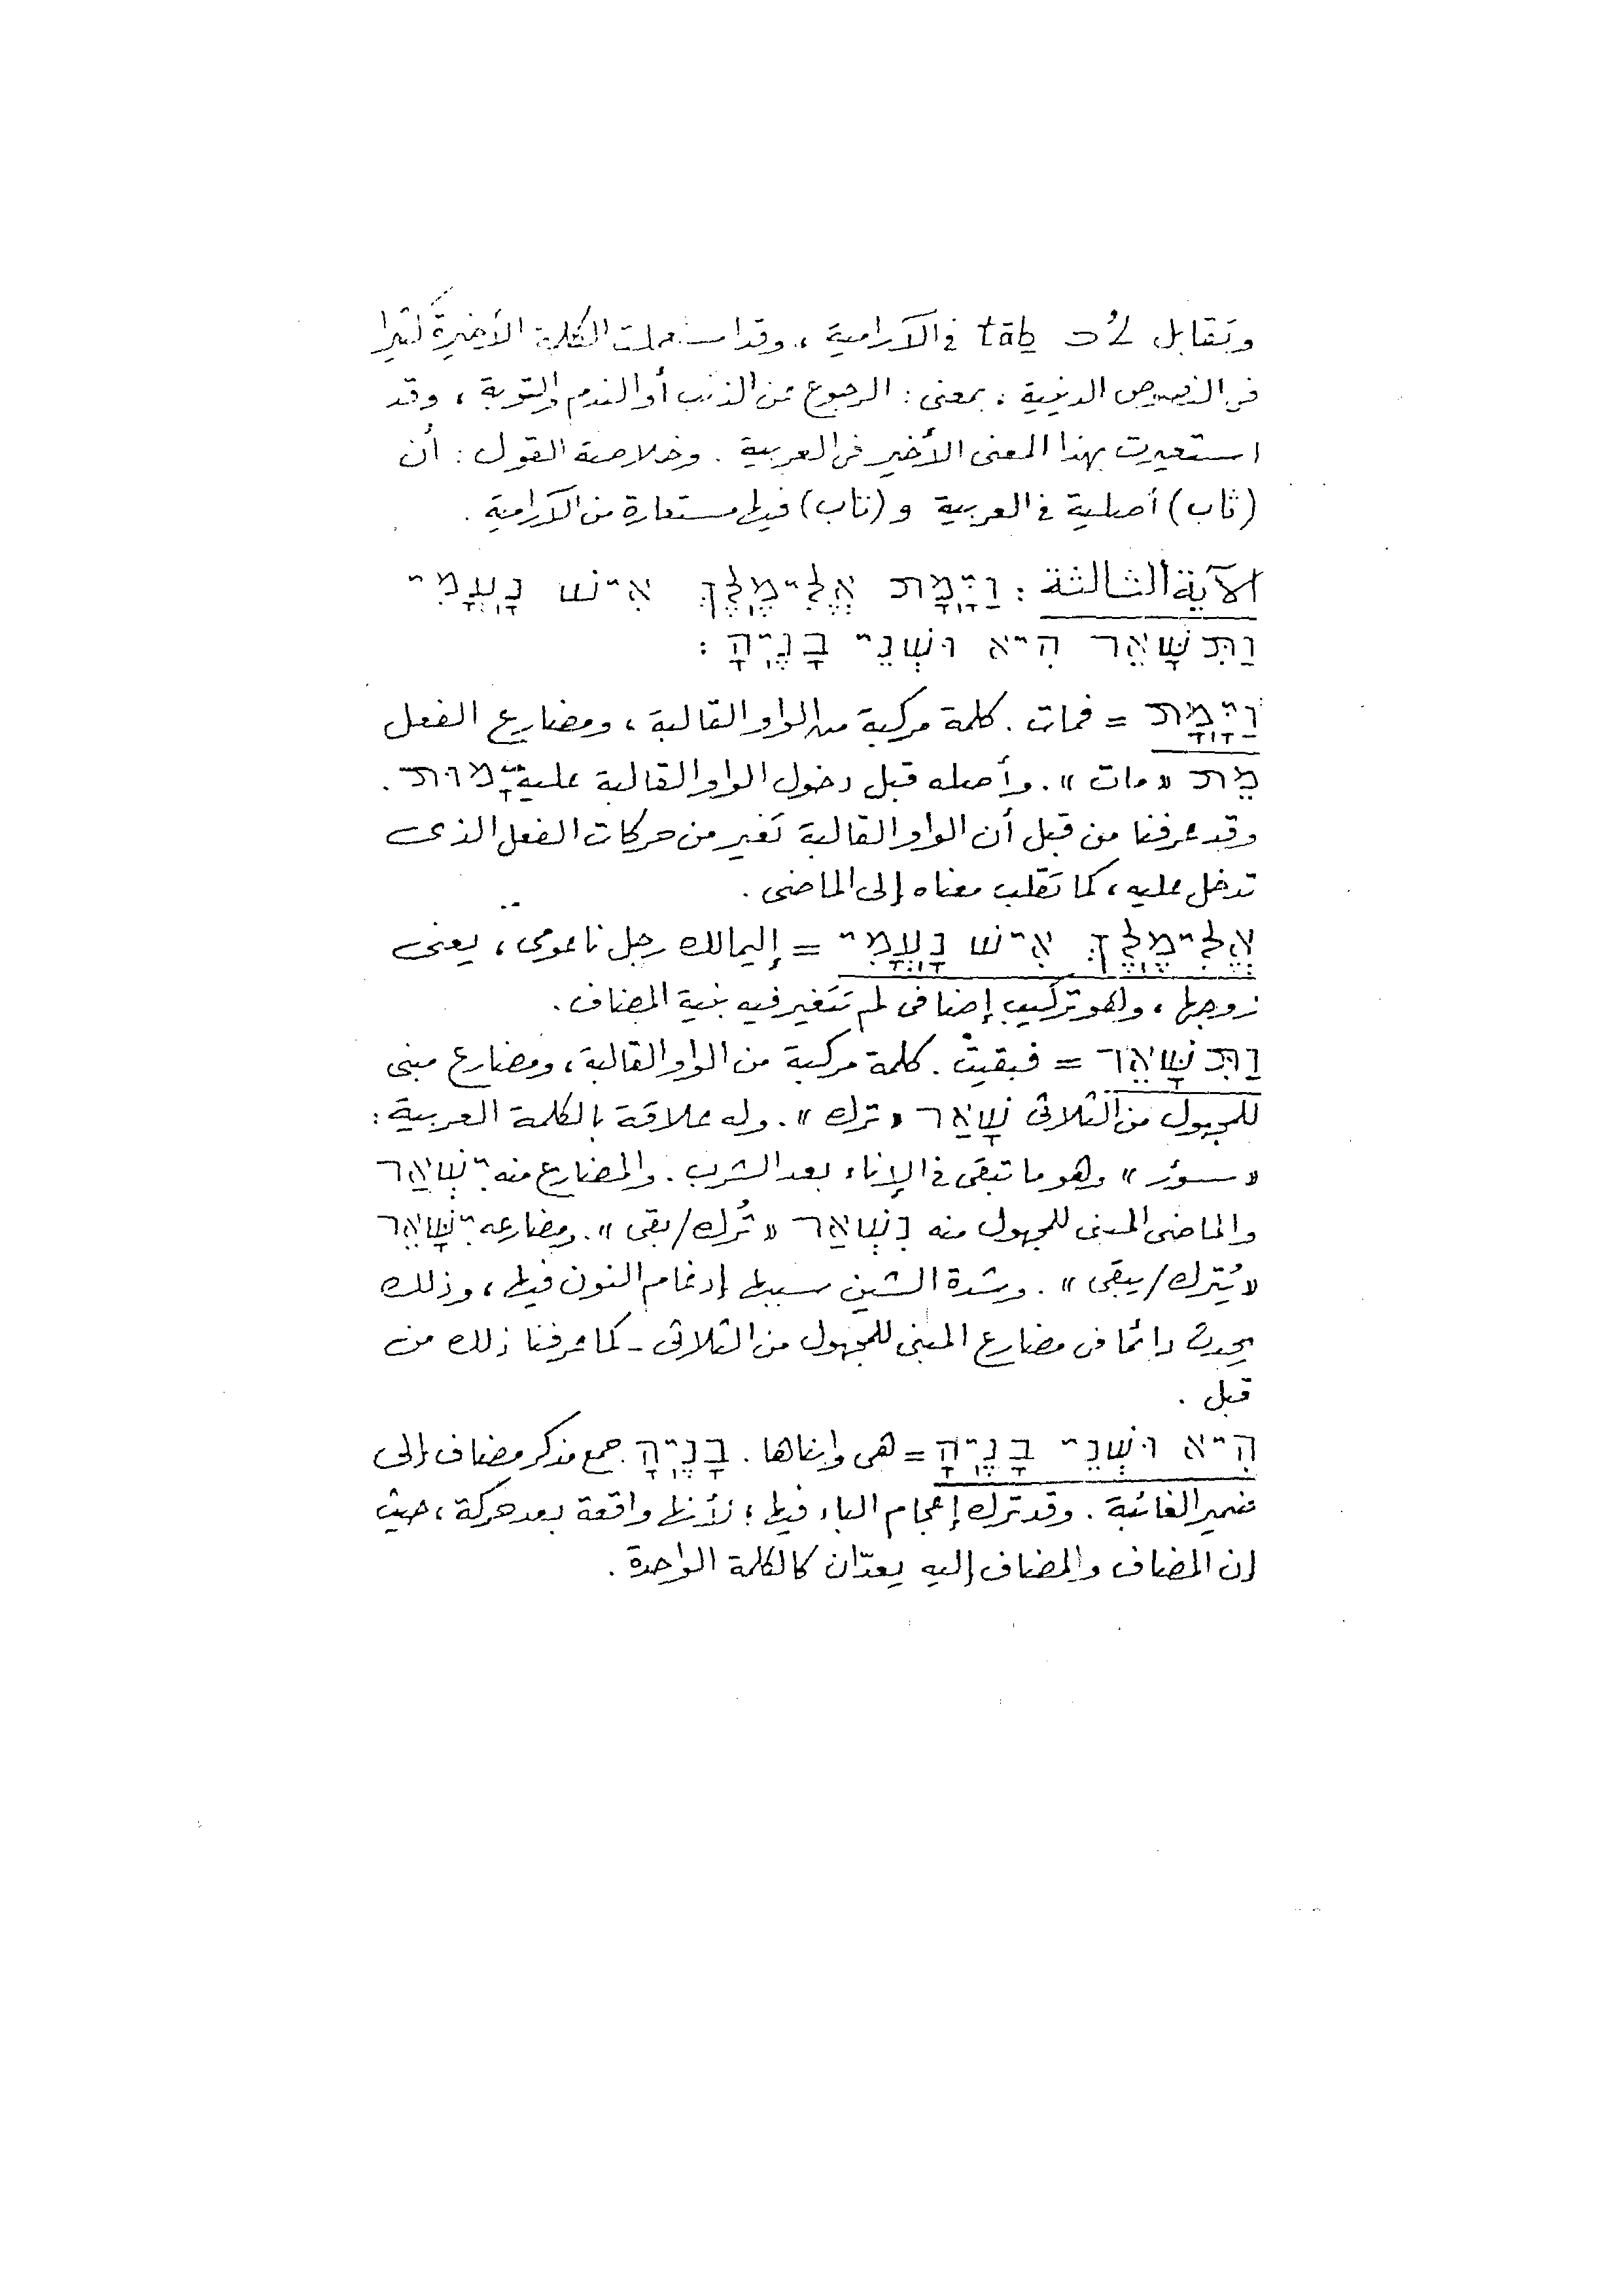 وتقابل tāḇ في الآرامية ، وقد استعملت الكلمة الأخيرة كثيرا
فى النصوص الدينية ، بمعنى : الرجوع عن الذنب أو الندم والتوبة ، وقد
استعيرت بهذا المعنى الأخير فى العربية . وخلاصة القول : أن
(ثاب) أصلية في العربية و (تاب) فيها مستعارة من الآرامية .
الآية الثالثة : וַיָּמָת אֱלִימֶלֶךְ אִישׁ נָעֳמִי
וַתִּשָּׁאֵר הִיא וּשְׁנֵי בָנֶיהָ :
וַיָּמָת = فمات . كلمة مركبة من الواو القالبة ، ومضارع الفعل
מֵת « مات » . وأصله قبل دخول الواو القالبة عليه יָמוּת .
وقد عرفنا من قبل أن الواو القالبة تغير من حركات الفعل الذى
تدخل عليه ، كما تقلب معناه إلى الماضى .
אֱלִימֶלֶךְ אִישׁ נָעֳמִי = إليمالك رجل ناعومى ، يعنى
زوجها ، وهو تركيب إضافى لم تتغير فيه بنية المضاف .
וַתִּשָּׁאֵר = فبقيتْ . كلمة مركبة من الواو القالبة ، ومضارع مبنى
للمجهول من الثلاثى שָׁאַר « ترك » . وله علاقة بالكلمة العربية :
« سؤر » وهو ما تبقى في الإناء بعد الشرب . والمضارع منه יִשְׁאַר
والماضى المبنى للمجهول منه נִשְׁאַר « تُرك / بقى » . ومضارعه יִשָּׁאֵר
« يُترك / يبقى » . وشدة الشين سببها إدغام النون فيها ، وذلك
يحدث دائما فى مضارع المبنى للمجهول من الثلاثى - كما عرفنا ذلك من
قبل .
הִיא וּשְׁנֵי בָנֶיהָ = هى وابناها . בָנֶיהָ جمع مذكر مضاف إلى
ضمير الغائبة . وقد ترك إعجام الباء فيها ؛ لأنها واقعة بعد حركة ، حيث
إن المضاف والمضاف إليه يعدّان كالكلمة الواحدة .